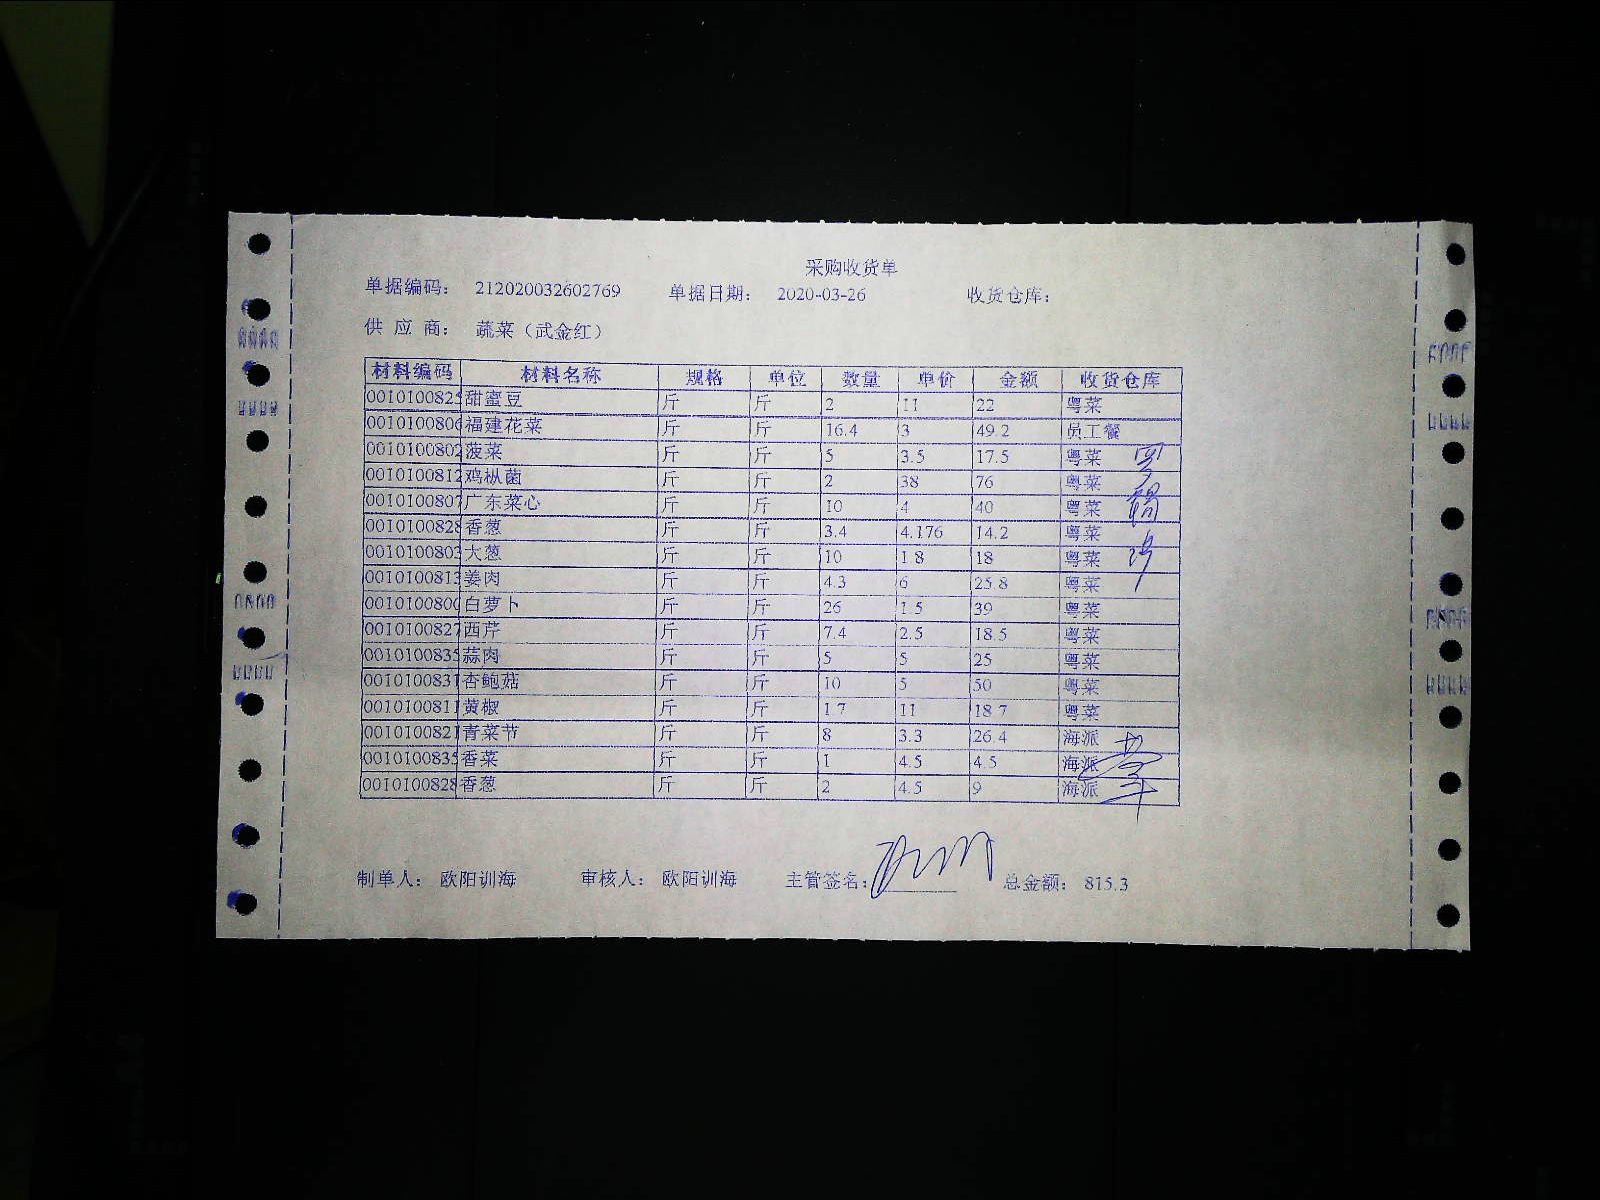 采购收货单
单据编码: 212020032602769 单据日期: 2020-03-26 收货仓库:
供应商: 蔬菜（武金红）
材料编码 材料名称 规格 单位 数量 单价 金额 收货仓库
0010100825 甜蜜豆 斤 斤 2 11 22 粤菜
0010100806 福建花菜 斤 斤 16.4 3 49.2 员工餐
0010100802 菠菜 斤 斤 5 3.5 17.5 粤菜
0010100812 鸡枞菌 斤 斤 2 38 76 粤菜
0010100807 广东菜心 斤 斤 10 4 40 粤菜
0010100828 香葱 斤 斤 3.4 4.176 14.2 粤菜
0010100803 大葱 斤 斤 10 1.8 18 粤菜
0010100813 姜肉 斤 斤 4.3 6 25.8 粤菜
0010100800 白萝卜 斤 斤 26 1.5 39 粤菜
0010100827 西芹 斤 斤 7.4 2.5 18.5 粤菜
0010100835 蒜肉 斤 斤 5 5 25 粤菜
0010100831 杏鲍菇 斤 斤 10 5 50 粤菜
0010100811 黄椒 斤 斤 1.7 11 18.7 粤菜
0010100821 青菜节 斤 斤 8 3.3 26.4 海派
0010100835 香菜 斤 斤 1 4.5 4.5 海派
0010100828 香葱 斤 斤 2 4.5 9 海派
制单人: 欧阳训海 审核人: 欧阳训海 主管签名: 总金额: 815.3